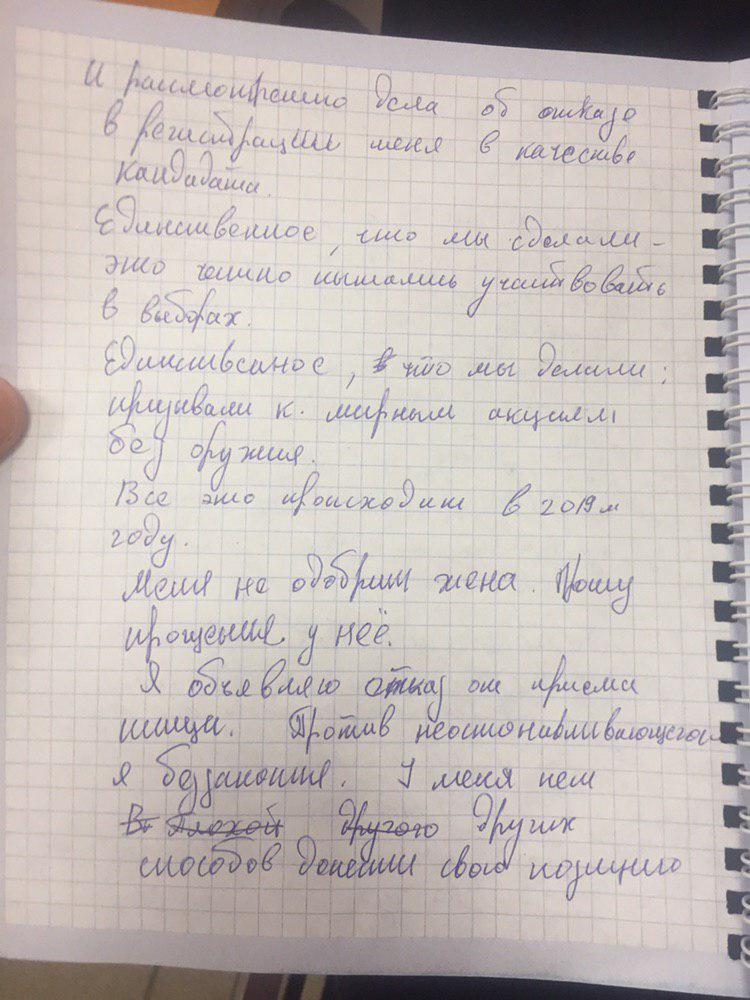 И рассмотрению дела об отказе
в регистрации меня в качестве
кандидата.
Единственное, что мы сделали –
это честно пытались участвовать
в выборах.
Единственное, что мы делали:
призывали к мирным акциям
без оружия.
Все это происходит в 2019м
году.
Меня не одобрит жена. Прошу
прощения у неё.
Я объявляю отказ от приема
пищи. Против неостонавливающегос-
я беззакония. У меня нет
В. Плохой другого других
способов донести свою позицию